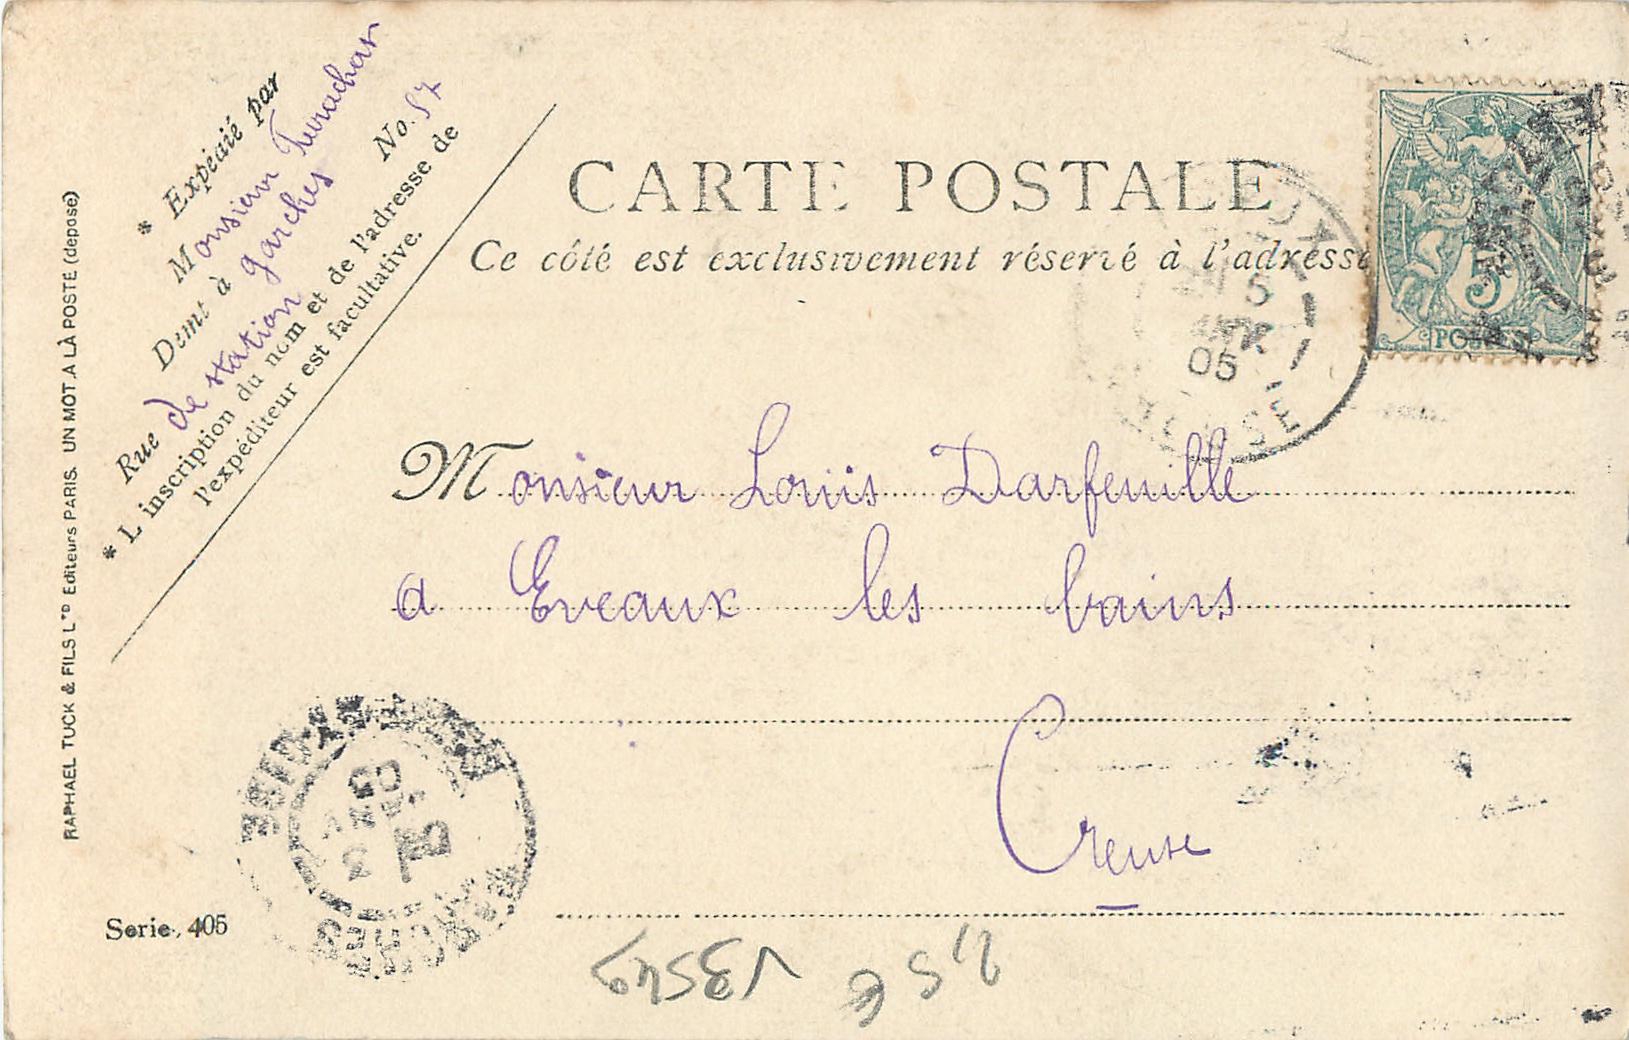 * Expédié par
Monsieur Turachon
Demt à Garches
Rue de station No. 57
* L'inscription du nom et de l'adresse de
l'expéditeur est facultative.
RAPHAEL TUCK & FILS LTD Editeurs PARIS. UN MOT A LÀ POSTE (depose)
CARTE POSTALE
Ce côté est exclusivement réservé à l'adresse
5
POSTES
5
05
Monsieur Louis Darfeuille
a Eveaux les bains
Creuse
05
GARCHES
SEINE
Serie. 405